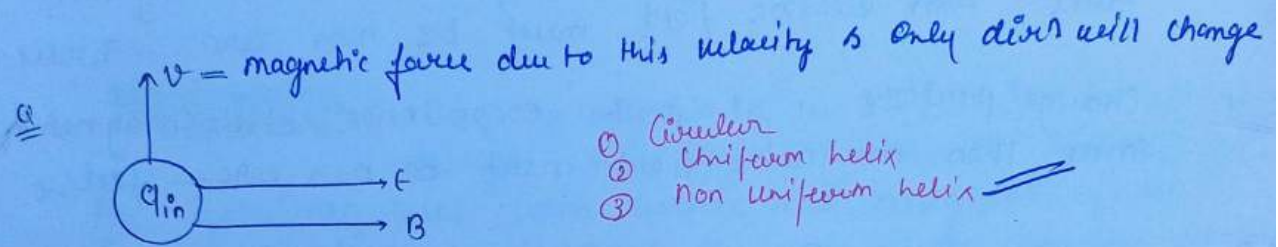 v = magnetic force due to this velocity & only dirn will change
Q
① Circular
② Uniform helix
③ non uniform helix
E
q in
B